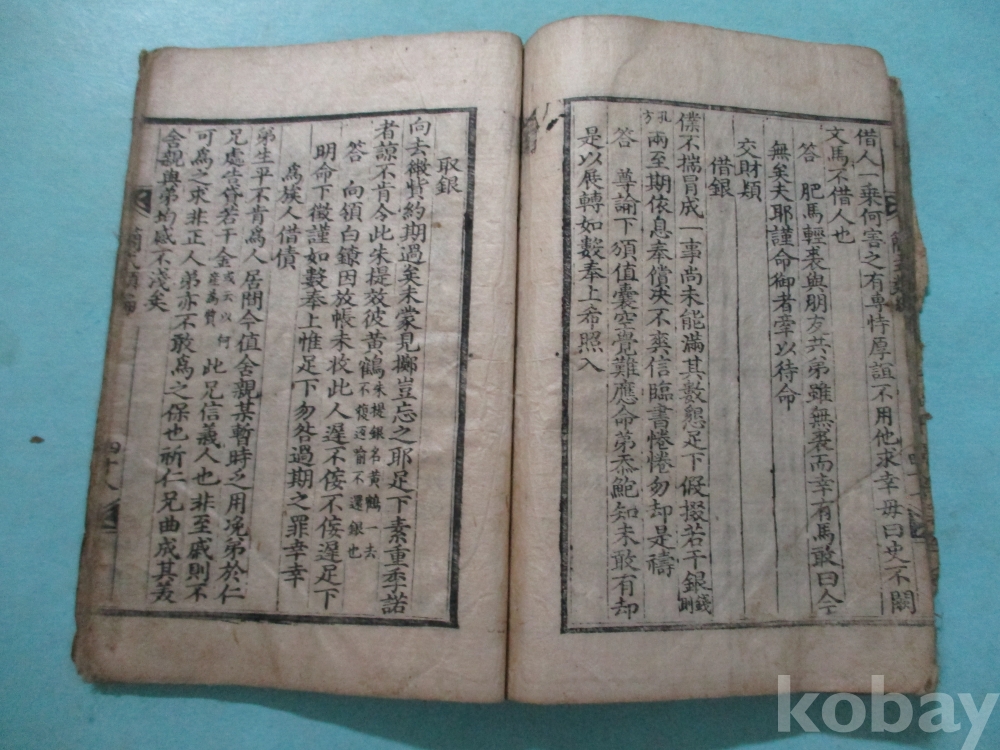 借人一乗何害之有専恃厚誼不用他求幸毋曰史不闕
文馬不借人也
答 肥馬輕裘與朋友共弟雖無裘而幸有馬敢曰今
無矣夫耶謹命御者牽以待命
交財類
借銀
僕不揣冒成一事尚未能滿其數懇足下假掇若干銀錢則
孔方兩至期依息奉償决不爽信臨書惓惓勿却是禱
答 尊諭下頒値囊空覺難應命弟忝鮑知未敢有却
是以展轉如數奉上希照入
取銀
向去微貲約期過矣未蒙見擲豈忘之耶足下素重季諾
者諒不肯令此朱提效彼黃鶴朱提銀名黃鶴一去不複返喻不還銀也
答 向領白鏹因放帳未收此人遲不佞不佞遲足下
明命下徵謹如數奉上惟足下勿咎過期之罪幸幸
爲族人借債
弟生平不肯爲人居間今值舍親某暫時之用浼弟於仁
兄處告貸若干金或云以何産為質此兄信義人也非至戚則不
可爲之求非正人弟亦不敢爲之保也祈仁兄曲成其美
舍親與弟均感不淺矣
四十八
kobay